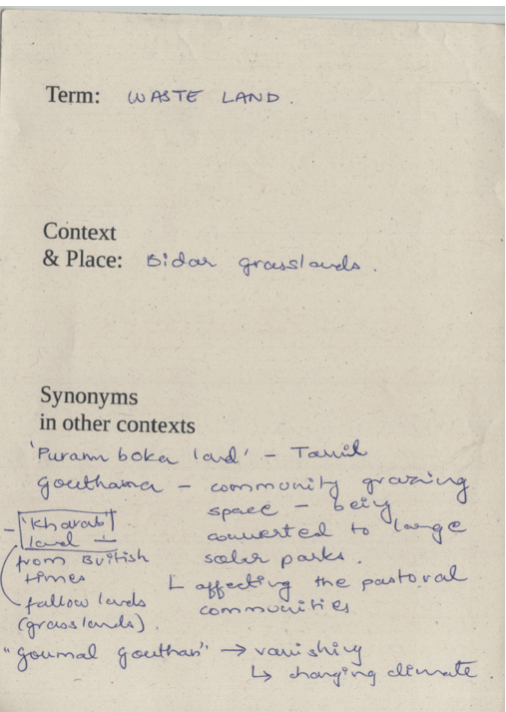 Term: WASTE LAND.
Context
& Place: Bidar grasslands.
Synonyms
in other contexts
'Purann boker land' – Tamil
Gouthana – community grazing
space – being
converted to large
solar parks.
↳ affecting the pastoral
communities
– 'Kharab'
land –
from British
times
fallow lands
(grasslands).
"goumal gouthan" → vanishing
↳ changing climate.